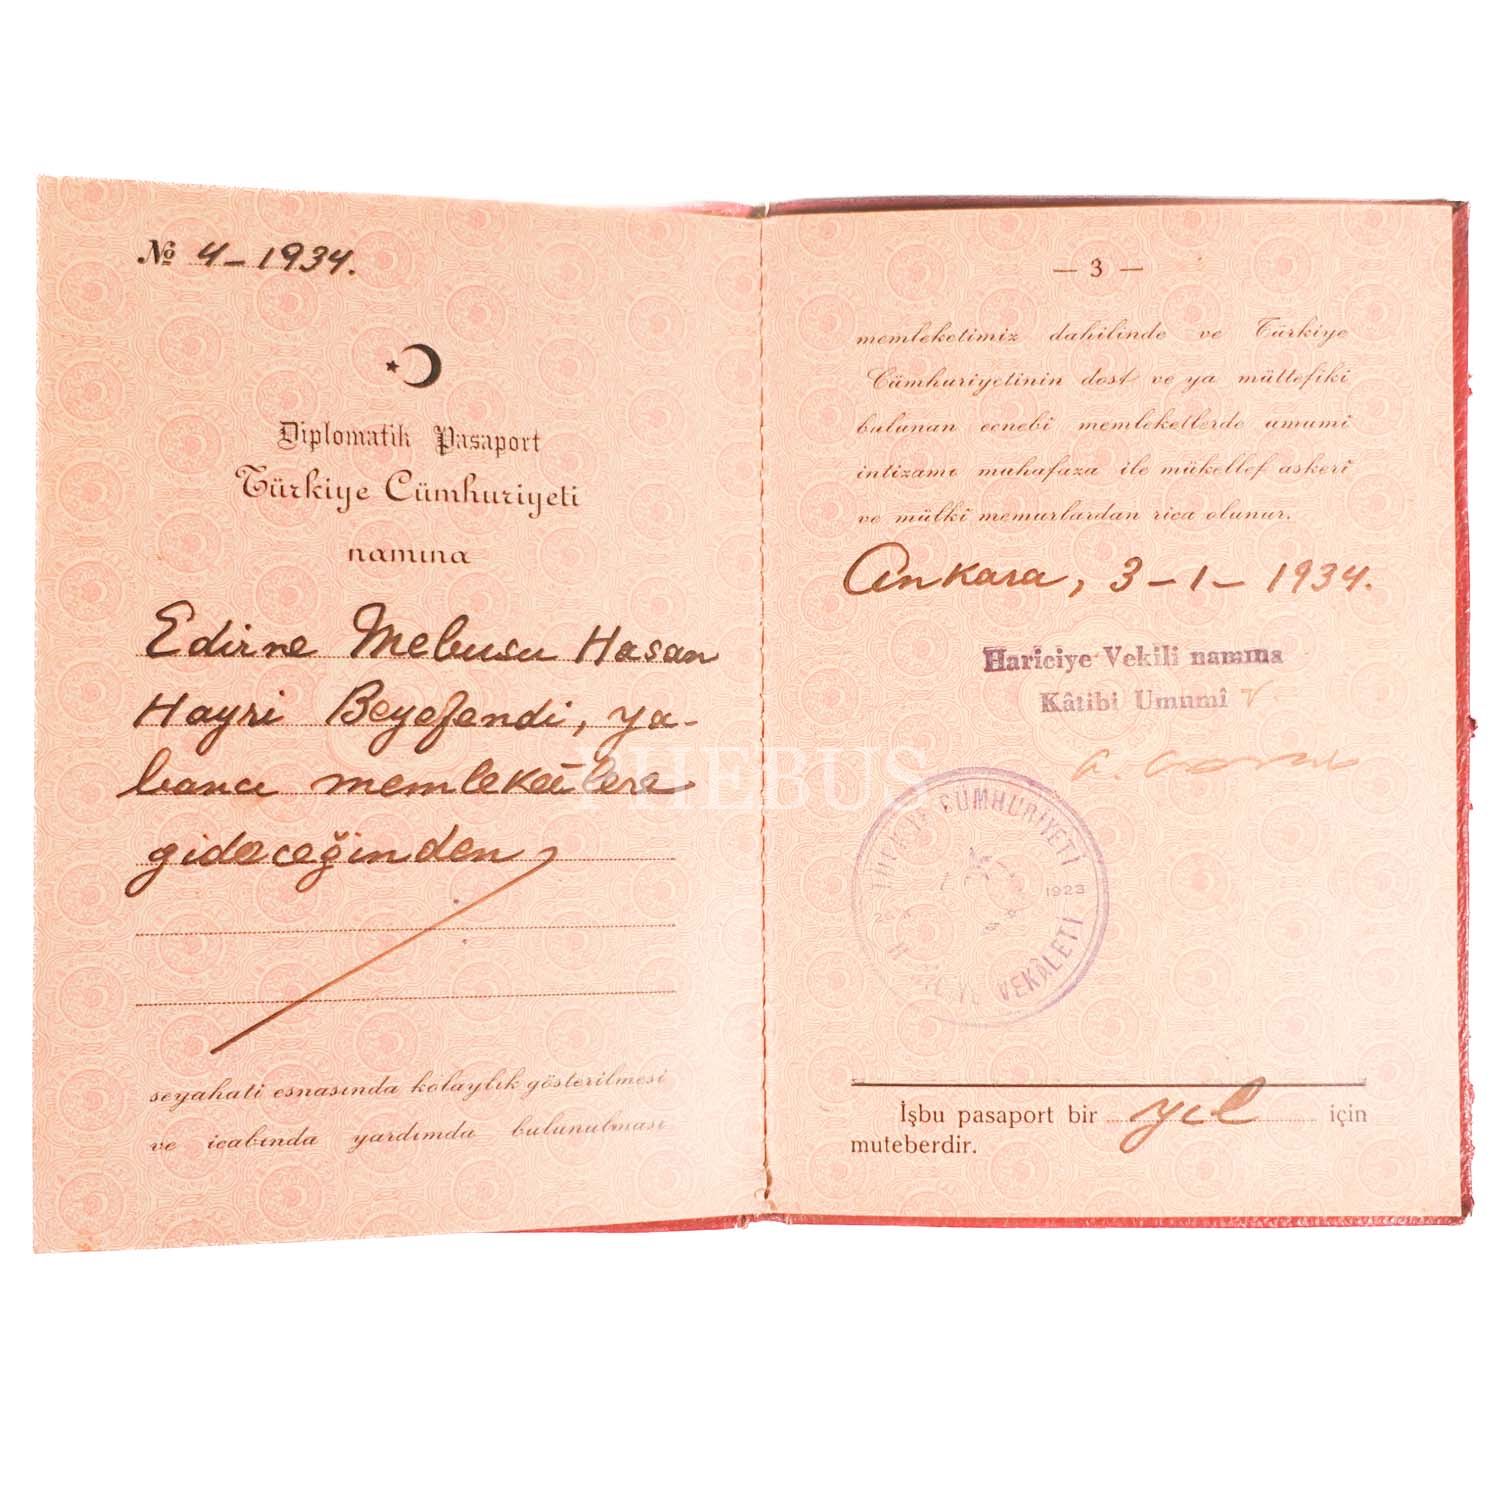 № 4-1934.
Diplomatik Pasaport
Türkiye Cümhuriyeti
namına
Edirne Mebusu Hasan
Hayri Beyefendi, ya-
bancı memleketlere
gideceğinden,
seyahati esnasında kolaylık gösterilmesi
ve icabında yardımda bulunulması
— 3 —
memleketimiz dahilinde ve Türkiye
Cümhuriyetinin dost ve ya müttefiki
bulunan ecnebi memleketlerde umumî
intizamı muhafaza ile mükellef askerî
ve mülkî memurlardan rica olunur.
Ankara, 3-1-1934.
Hariciye Vekili namına
Kâtibi Umumî
TÜRKİYE CÜMHURİYETİ
1923
VEKÂLETİ
İşbu pasaport bir yıl için
muteberdir.
PHEBUS